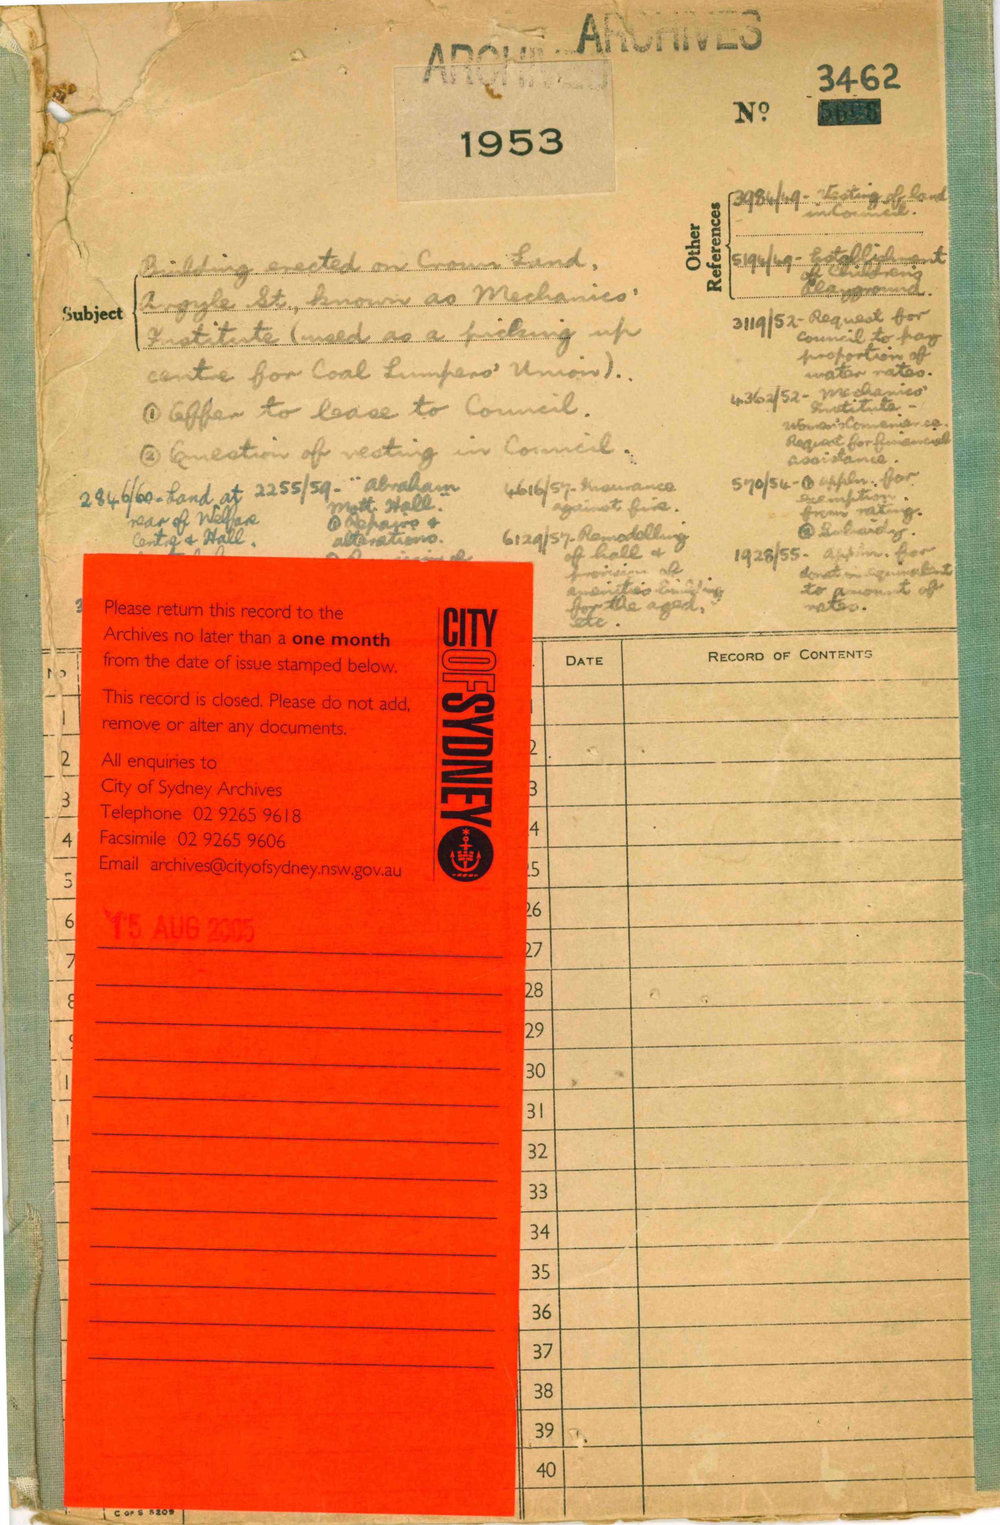 ARCHIVES
ARCHIVES
1953
Nº 3462
Other References
3984/49- Vesting of land
in Council.
5194/49- Establishment
of Children's
Playground.
3119/52- Request for
Council to pay
proportion of
water rates.
4362/52- Mechanics'
Institute -
Request for financial
assistance.
570/54- ① Appln. for
exemption
from rating.
② Subsidy.
1928/55- Appln. for
donation equivalent
to amount of
rates.
Subject
Building erected on Crown Land,
Argyle St., known as Mechanics'
Institute (used as a picking up
centre for Coal Lumpers' Union).
① Offer to lease to Council.
② Question of vesting in Council.
2846/60- Land at
rear of Welfare
Centre & Hall.
2255/59- Abraham
Mott Hall.
① Repairs &
alterations.
4616/57- Insurance
against fire.
6129/57- Remodelling
of hall &
provision of
amenities building
for the aged,
etc.
Please return this record to the
Archives no later than a one month
from the date of issue stamped below.
This record is closed. Please do not add,
remove or alter any documents.
All enquiries to
City of Sydney Archives
Telephone 02 9265 9618
Facsimile 02 9265 9606
Email archives@cityofsydney.nsw.gov.au
CITY OF SYDNEY
15 AUG 2005
DATE
RECORD OF CONTENTS
2
3
4
5
6
7
8
26
27
28
29
30
31
32
33
34
35
36
37
38
39
40
C OF S 5209